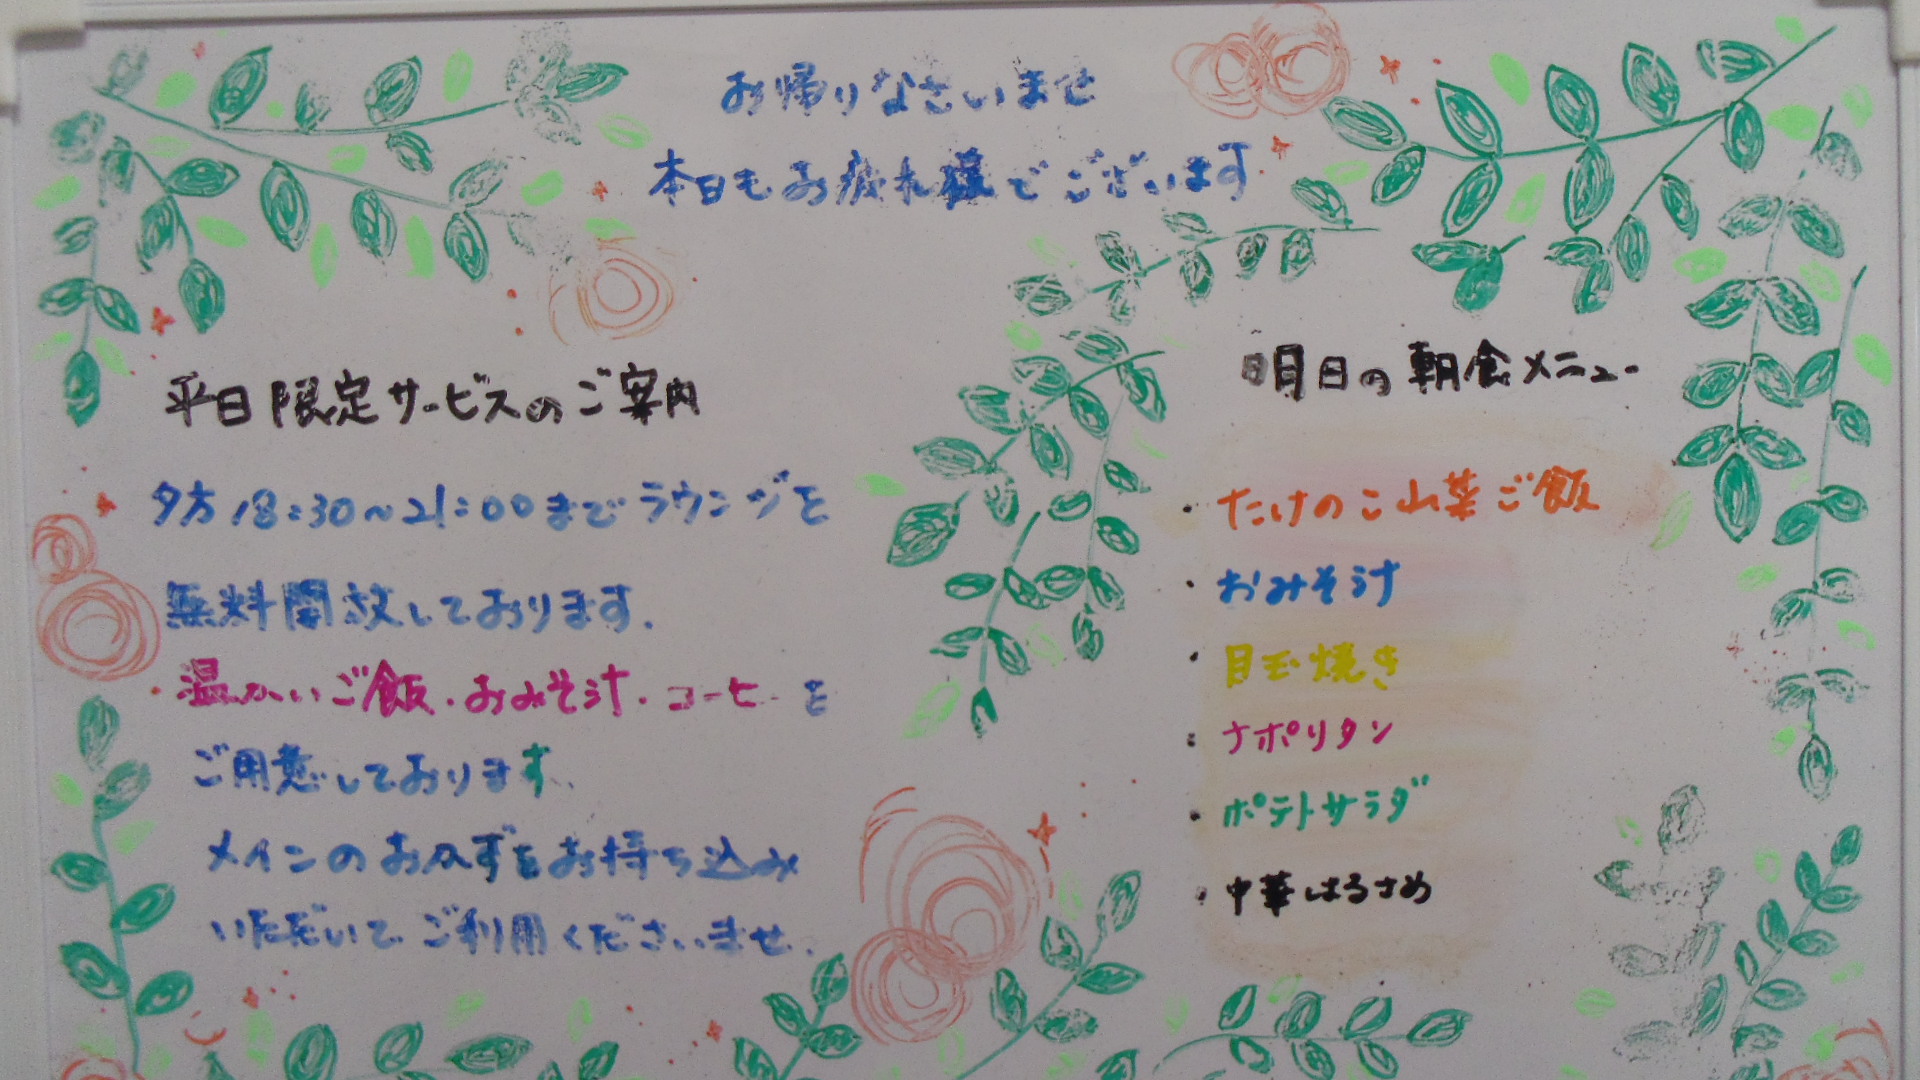 お帰りなさいませ
本日もお疲れ様でございます
平日限定サービスのご案内
夕方18:30～21:00までラウンジを
無料開放しております.
温かいご飯・おみそ汁・コーヒーを
ご用意しております.
メインのおかずをお持ち込み
いただいてご利用くださいませ.
明日の朝食メニュー
・たけのこ山菜ご飯
・おみそ汁
・目玉焼き
・ナポリタン
・ポテトサラダ
・中華はるさめ